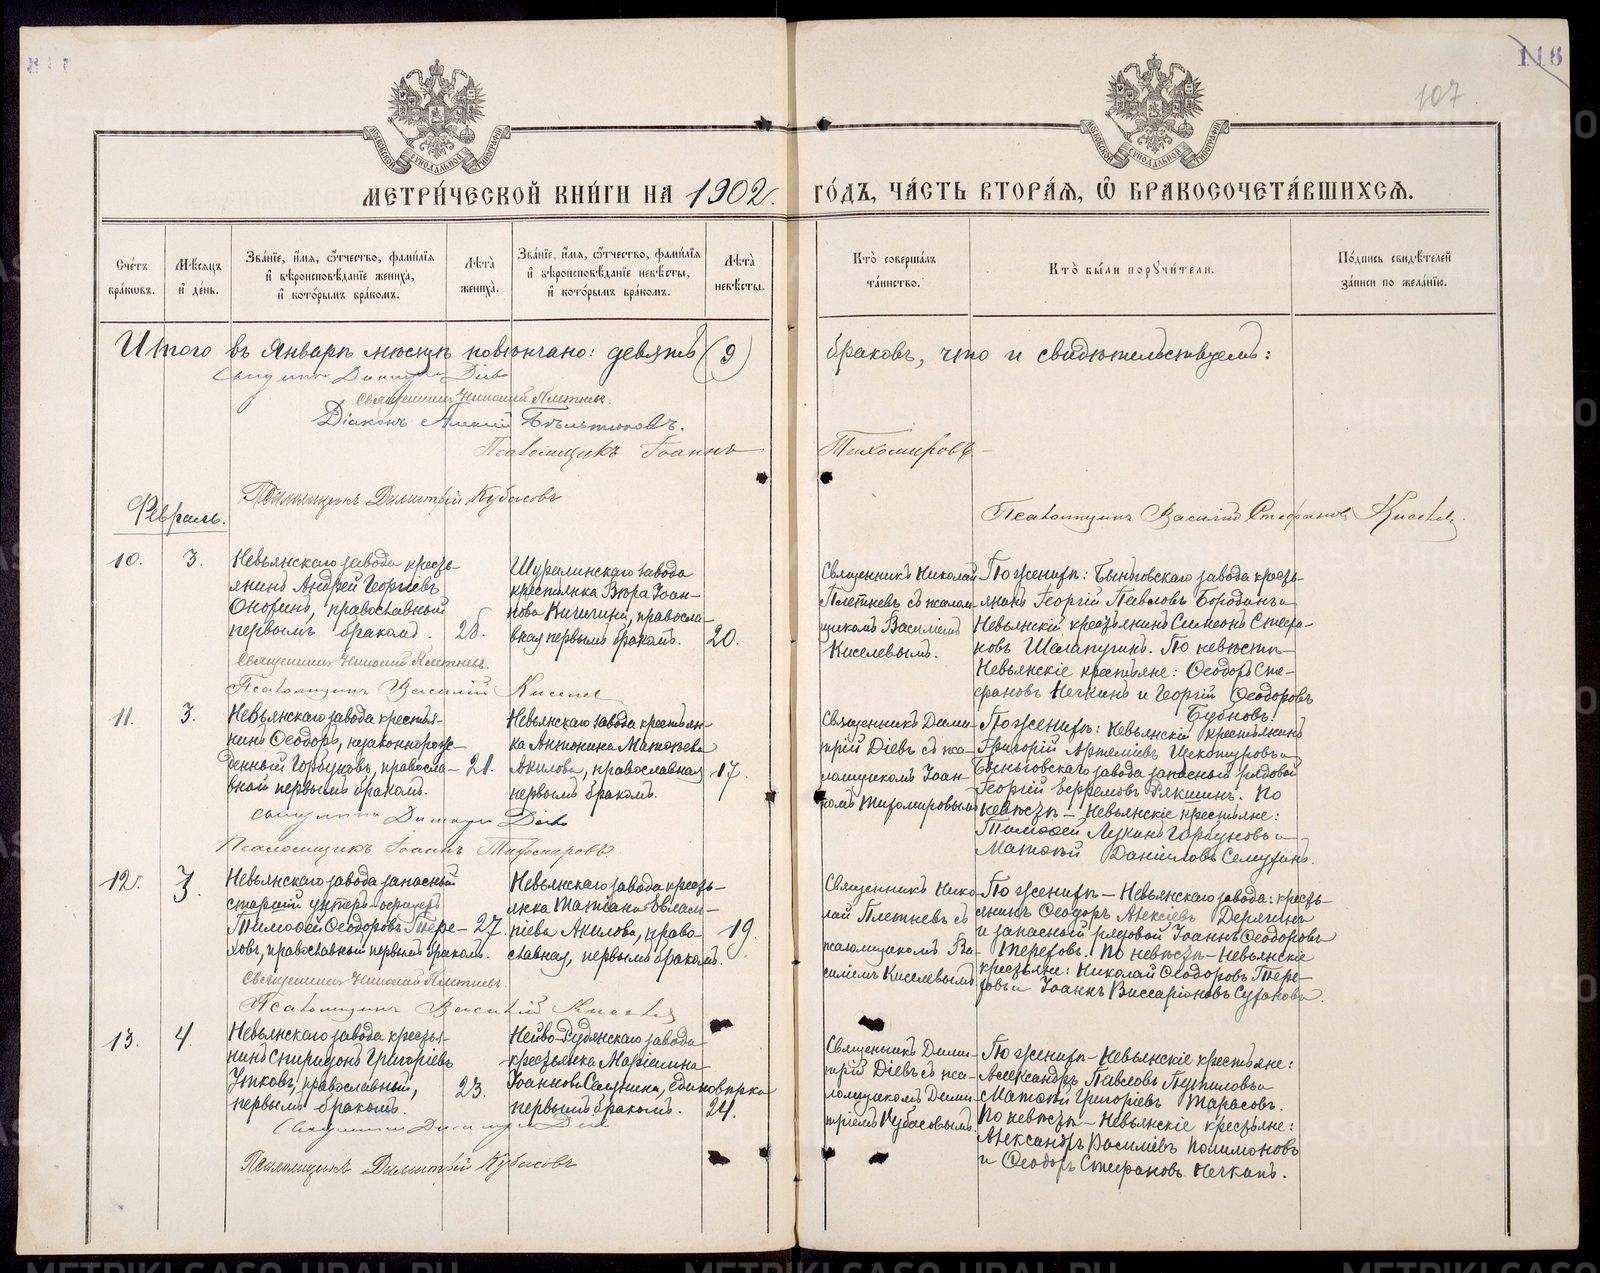 118
107
МОСКОВСКОЙ СѴНОДАЛЬНОЙ ТИПОГРАФІИ
МОСКОВСКОЙ СѴНОДАЛЬНОЙ ТИПОГРАФІИ
МЕТРИ́ЧЕСКОЙ КНИ́ГИ НА 1902. ГО́ДЪ, ЧА́СТЬ ВТОРА́Я, Ѽ БРАКОСОЧЕТА́ВШИХСѦ.
Счётъ
бра́кωвъ.
Мѣ́сяцъ
и҆ де́нь.
Зва́нїе, и҆́мѧ, ѻ҆́тчество, фами́лїѧ
и҆ вѣроисповѣ́данїе жениха̀,
и҆ кото́рымъ бра́комъ.
Лѣ́та
жениха̀.
Зва́нїе, и҆́мѧ, ѻ҆́тчество, фами́лїѧ
и҆ вѣроисповѣ́данїе невѣ́сты,
и҆ кото́рымъ бра́комъ.
Лѣ́та
невѣ́сты.
Кто̀ соверша́лъ
та́инство.
Кто̀ бы́ли порꙋчи́тели.
По́дпись свидѣ́телей
за́писи по жела́нїю.
Итого въ Январѣ мѣсяцѣ повѣнчано: девять (9) браковъ, что и свидѣтельствуемъ:
Священникъ Димитрій Діевъ
Священникъ Николай Плетневъ.
Діаконъ
Псаломщикъ Іоаннъ Тихомировъ
Псаломщикъ Димитрій Кубасовъ
Псаломщикъ Василій Стефановъ Киселевъ
Февраль.
10. 3.
Невьянскаго завода кресть-
янинъ Андрей Георгіевъ
Онофинъ, православный
первымъ бракомъ.
Шуралинскаго завода
крестьянка Вѣра Іоан-
нова Кичигина, правосла-
вная первымъ бракомъ.
20.
Священникъ Николай
Плетневъ съ псалом-
щикомъ Василіемъ
Киселевымъ.
По женихѣ: Быньговскаго завода кресть-
янинъ Георгій Павловъ Бородинъ и
Невьянскій крестьянинъ Симеонъ Стефа-
новъ Шелапугинъ. По невѣстѣ—
Невьянскіе крестьяне: Ѳеодоръ Сте-
фановъ Нечкинъ и Георгій Ѳеодоровъ
Бубновъ.
Священникъ Николай Плетневъ.
Псаломщикъ Василій Киселев
11. 3.
Невьянскаго завода крестья-
нинъ Ѳеодоръ, незаконнорож-
денный Горбуновъ, правосла-
вный первымъ бракомъ.
21.
Невьянскаго завода крестьян-
ка Антонина Матѳеева
Акилова, православная
первымъ бракомъ.
17.
Священникъ Дими-
трій Діевъ съ пса-
ломщикомъ Іоан-
номъ Тихомировымъ
По женихѣ: Невьянскій крестьянинъ
Григорій Артеміевъ и
Быньговскаго завода запасный рядовой
Георгій Ефремовъ Якшинъ. По
невѣстѣ — Невьянскіе крестьяне:
Тимоѳей Лукинъ Горбуновъ и
Матѳей Даніиловъ Семухинъ.
Священникъ Димитрій Діевъ
Псаломщикъ Іоаннъ Тихомировъ
12. 3.
Невьянскаго завода запасный
старшій унтеръ-офицеръ
Тимоѳей Ѳеодоровъ Тере-
ховъ, православный первымъ бракомъ.
27.
Невьянскаго завода кресть-
янка Татіана Евлам-
піева Акилова, право-
славная, первымъ бракомъ.
19.
Священникъ Нико-
лай Плетневъ съ
псаломщикомъ Ва-
силіемъ Киселевымъ
По женихѣ — Невьянскаго завода: кресть-
янинъ Ѳеодоръ Алексіевъ Дерягинъ
и запасный рядовой Іоаннъ Ѳеодоровъ
Тереховъ. По невѣстѣ — Невьянскіе
крестьяне: Николай Ѳеодоровъ Тере-
ховъ и Іоаннъ Виссаріоновъ Сухановъ.
Священникъ Николай Плетневъ.
Псаломщикъ Василій Киселевъ
13. 4.
Невьянскаго завода крестья-
нинъ Спиридонъ Григоріевъ
Утковъ, православный,
первымъ бракомъ.
23.
Нейво-Рудянскаго завода
крестьянка Маріамна
Іоаннова Салдина, единовѣрка
первымъ бракомъ.
24.
Священникъ Дими-
трій Діевъ съ пса-
ломщикомъ Дими-
тріемъ Кубасовымъ
По женихѣ — Невьянскіе крестьяне:
Александръ Павловъ Путиловъ и
Матѳей Григоріевъ Тарасовъ.
По невѣстѣ — Невьянскіе крестьяне:
Александръ Василіевъ Полимоновъ
и Ѳеодоръ Стефановъ Нечкинъ.
Священникъ Димитрій Діевъ
Псаломщикъ Димитрій Кубасовъ
METRIKI.GASO-URAL.RU